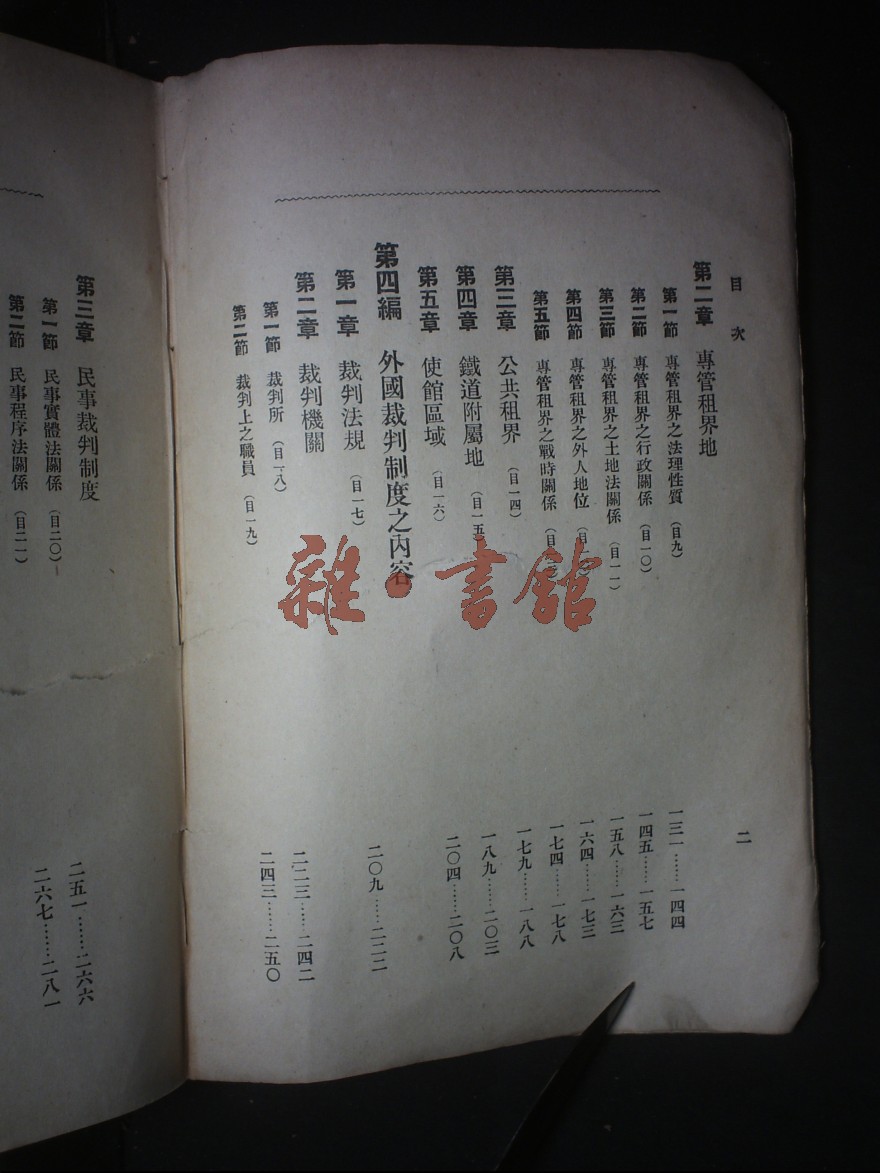 目次
二
第二章 專管租界地
第一節 專管租界之法理性質 (目九) 一三一……一四四
第二節 專管租界之行政關係 (目一〇) 一四五……一五七
第三節 專管租界之土地法關係 (目一一) 一五八……一六三
第四節 專管租界之外人地位 (目 一六四……一七三
第五節 專管租界之戰時關係 (目一三) 一七四……一七八
第三章 公共租界 (目一四) 一七九……一八八
第四章 鐵道附屬地 (目一五) 一八九……二〇三
第五章 使館區域 (目一六) 二〇四……二〇八
第四編 外國裁判制度之內容
第一章 裁判法規 (目一七) 二〇九……二二二
第二章 裁判機關
第一節 裁判所 (目一八) 二二三……二四二
第二節 裁判上之職員 (目一九) 二四三……二五〇
第三章 民事裁判制度
第一節 民事實體法關係 (目二〇) 二五一……二六六
第二節 民事程序法關係 (目二一) 二六七……二八一
雜·書館